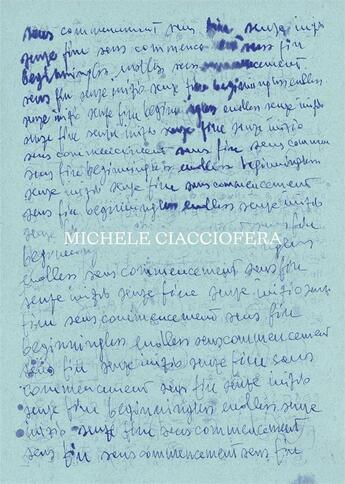 sens commencement sens fin senza inizio
senza fine sens commence sens fin
beginningless endless sens commencement
sens fin senza inizio senza fine beginningless endless
senza inizio senza fine beginningless endless senza inizio
senza fine senza inizio senza fine senza inizio
sens commencement sens fin sens commen
sens fin beginningless endless beginningless
senza inizio senza fine sens commencement
sens fin beginningless endless senza inizio
senza fin
MICHELE CIACCIOFERA
endless sens commencement sens fin
senza inizio senza fine senza inizio senza
fine sens commencement sens fin
beginningless endless sens commencement
sens fin senza inizio senza fine sans
commencement sens fin senza inizio
senza fine beginningless endless senza
inizio senza fine sens commencement
sens fin sens commencement sens fin